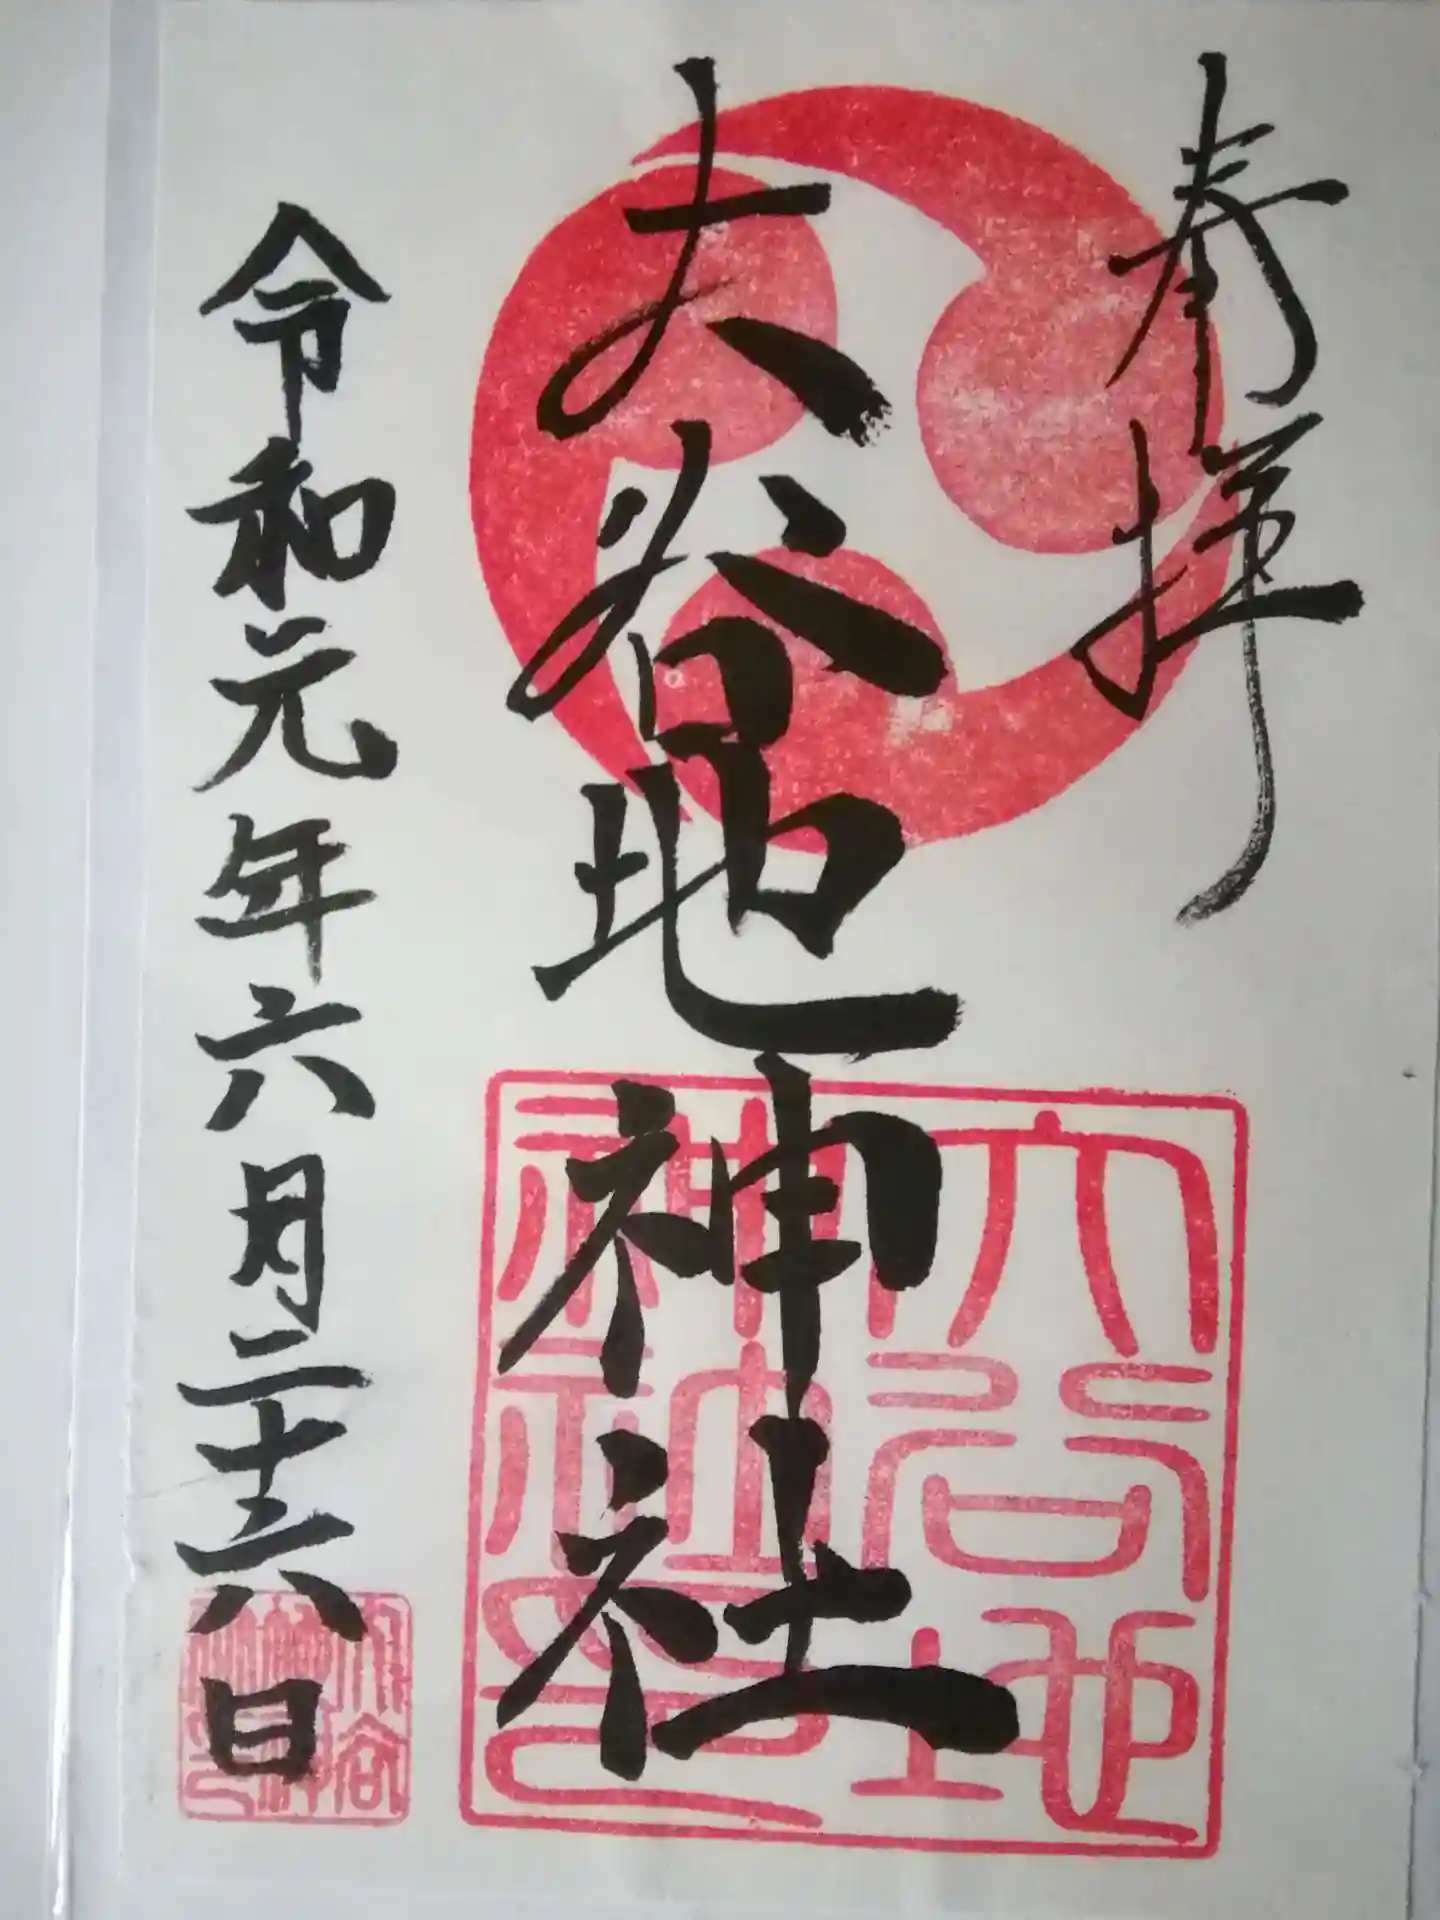 奉拝
大谷地神社
令和元年六月二十六日
大谷地
神社印